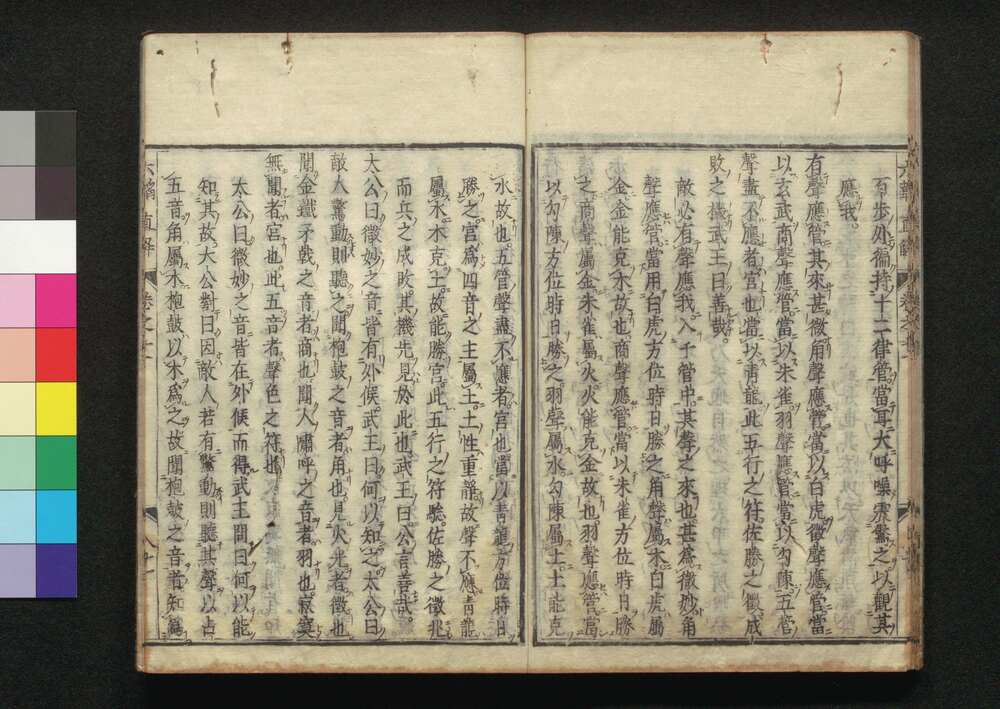 百歩外徧持十二律管當耳大呼噪震驚之以觀其
應我
有聲應管其來甚微角聲應管當以白虎徵聲應管當
以玄武商聲應管當以朱雀羽聲應管當以勾陳五管
聲盡不應者宮也當以青龍此五行之符佐勝之徵成
敗之機武王曰善哉
敵必有聲應我入于管中其聲之來也甚爲微妙角
聲應管當用白虎方位時日勝之角聲屬木白虎屬
金金能克木故也商聲應管當以朱雀方位時日勝
之商聲屬金朱雀屬火火能克金故也羽聲應管當
以勾陳方位時日勝之羽聲屬水勾陳屬土土能克
水故也五管聲盡不應者宮也當以青龍方位時日
勝之宮爲四音之主屬土土性重難故聲不應青龍
屬木木克土故能勝宮此五行之符驗佐勝之徵兆
而兵之成敗其機先見於此也武王曰公言善哉
太公曰微妙之音皆有外候武王曰何以知之太公曰
敵人驚動則聽之聞枹鼓之音者角也見火光者徵也
聞金鐵矛戟之音者商也聞人嘯呼之音者羽也寂寞
無聞者宮也此五音者聲色之符也
太公曰微妙之音皆在外候而得武王問曰何以能
知其故太公對曰因敵人若有驚動則聽其聲以占
五音角屬木枹鼓以木爲之故聞枹鼓之音者知爲
六韜直解
卷之
十一